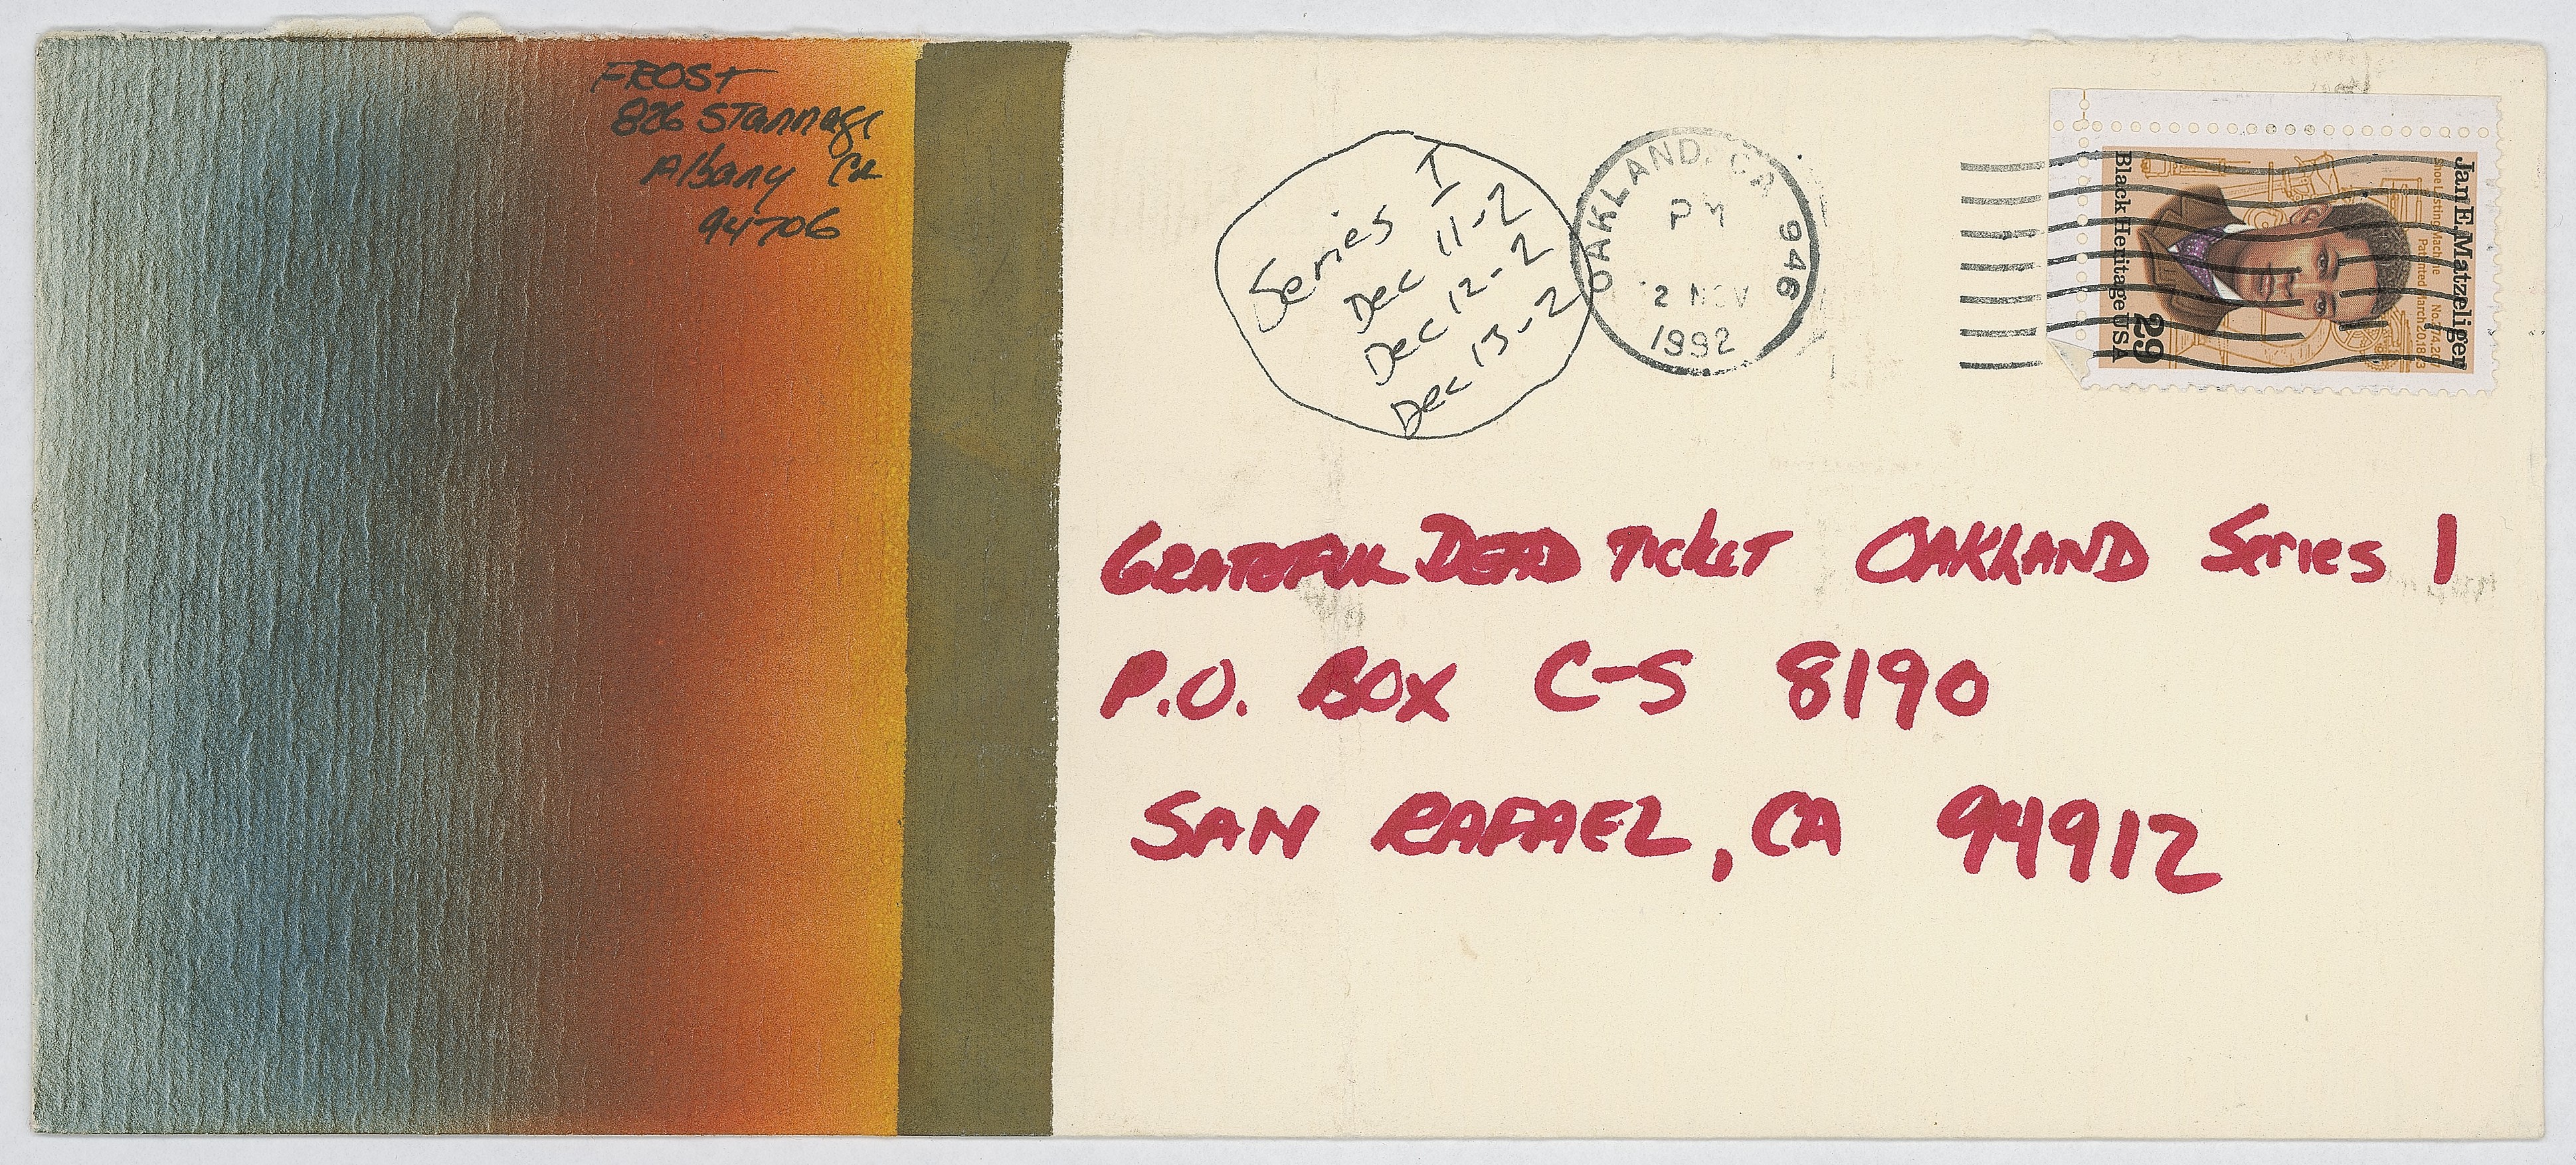 FROST
826 Stannage
Albany Ca
94706
Series I
Dec 11-2
Dec 12-2
Dec 13-2
OAKLAND, CA 946
PM
2 NOV
1992
Jan E. Matzeliger
Shoe Lasting Machine
Patented March 20, 1883
Black Heritage USA
29
GRATEFUL DEAD TICKET OAKLAND Series 1
P.O. BOX C-S 8190
SAN RAFAEL, CA 94912